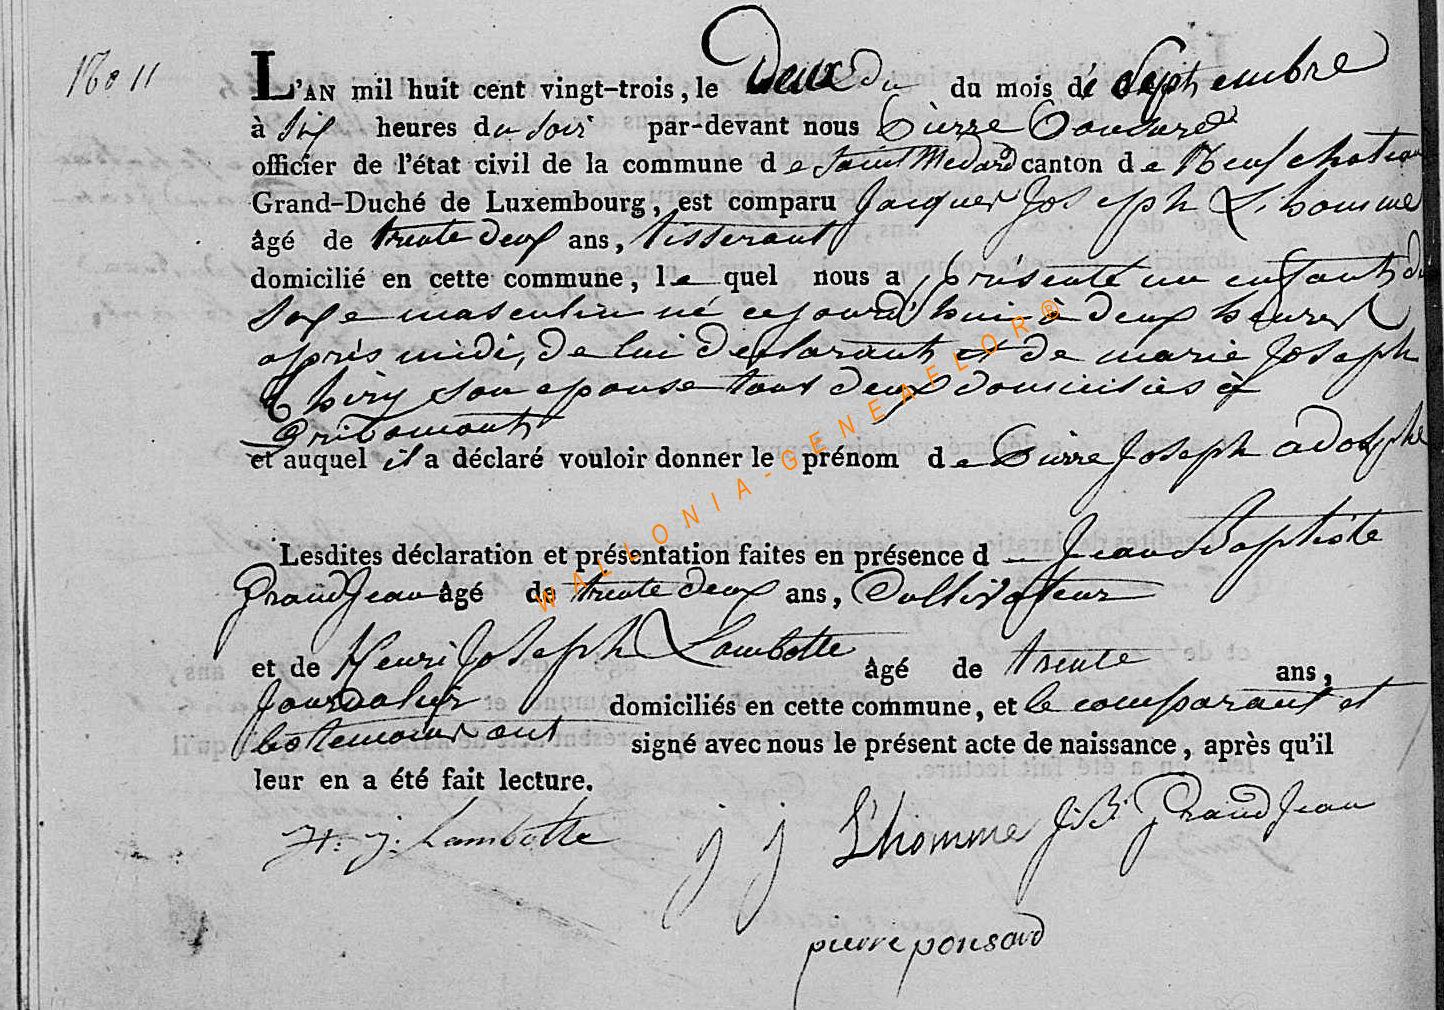 N° 11
L'AN mil huit cent vingt-trois, le Deux du du mois de Septembre
à Six heures du Soir par-devant nous Pierre Ponsard
officier de l'état civil de la commune de Saint Medard canton de Neufchateau
Grand-Duché de Luxembourg, est comparu Jacques Joseph L'homme
âgé de trente deux ans, tisserant
domicilié en cette commune, le quel nous a présenté un enfant du
Sexe masculin né cejourd'hui à deux heures
après midi, de lui declarant et de marie Joseph
Thiry son epouse tous deux domiciliés à
Gribomont
et auquel il a déclaré vouloir donner le prénom de Pierre Joseph adolphe
Lesdites déclaration et présentation faites en présence d Jean Baptiste
Grand Jean âgé de trente deux ans, Cultivateur
et de Henri Joseph Lambotte âgé de trente ans,
Journalier domiciliés en cette commune, et le comparant et
les temoins ont signé avec nous le présent acte de naissance, après qu'il
leur en a été fait lecture.
H. j. Lambotte j j L'homme J.B. Grand Jean
pierre ponsard
WALLONIA-GENEAFLOR®